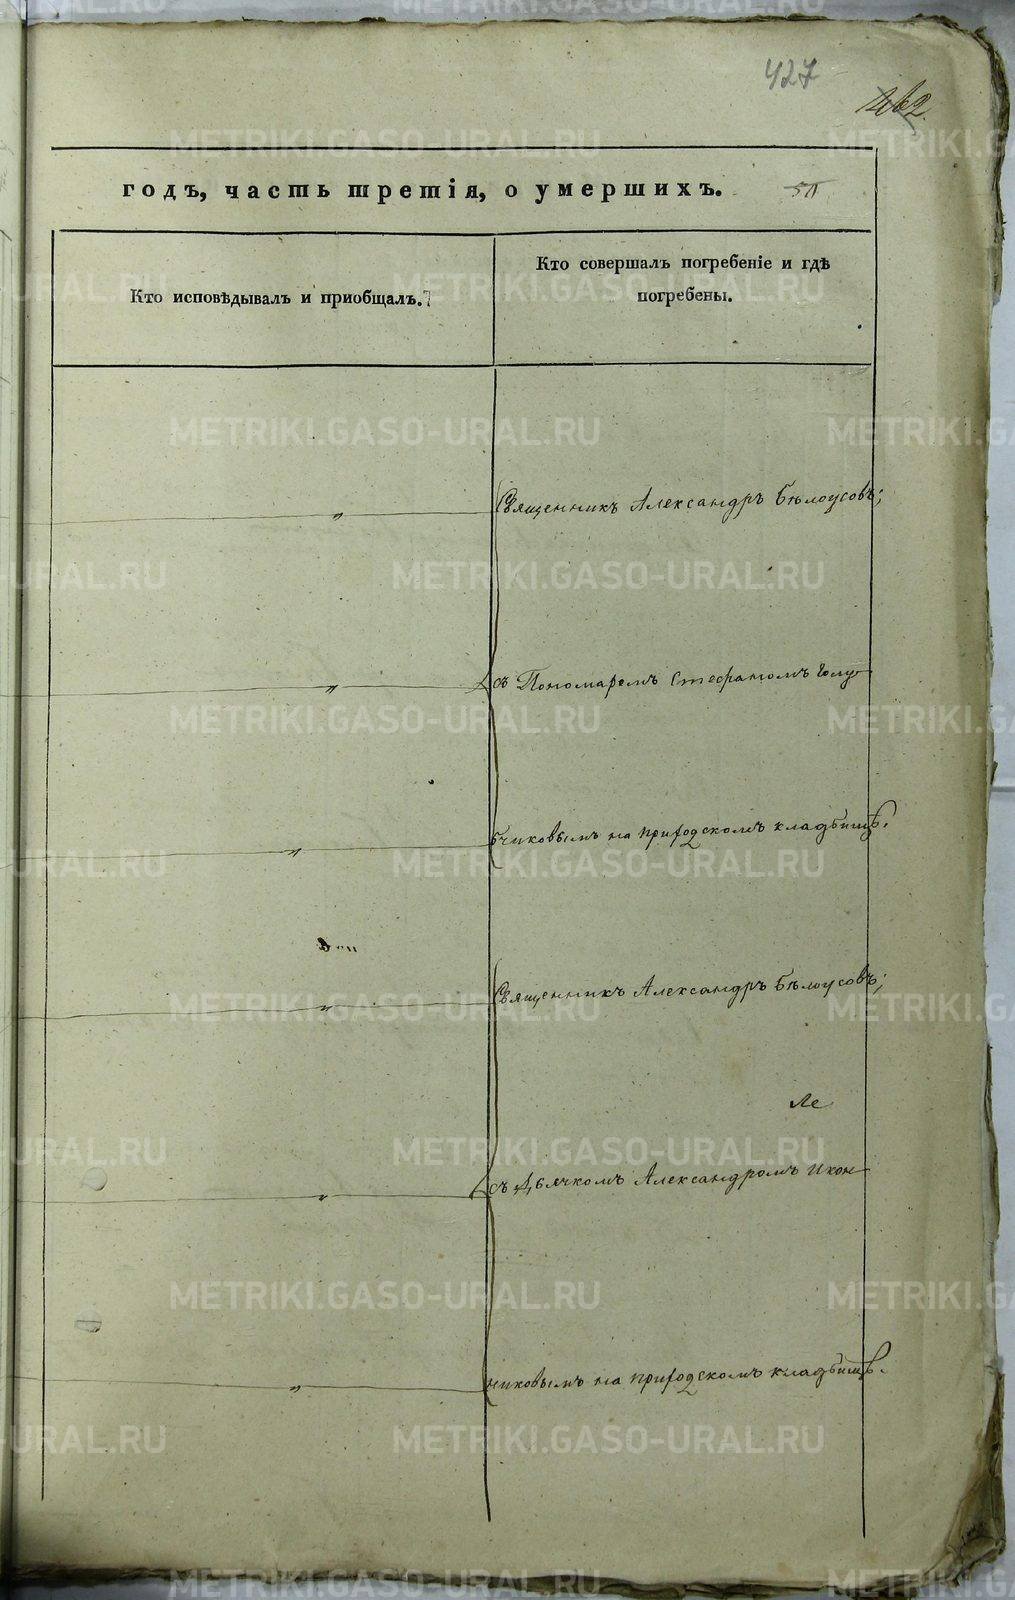 427
462.
годъ, часть третія, о умершихъ.
Кто исповѣдывалъ и приобщалъ.
Кто совершалъ погребеніе и гдѣ
погребены.
Священникъ Александръ Бѣлоусовъ;
съ Пономаремъ Стефаномъ Голу-
бчиковымъ на приходскомъ кладбищѣ.
Священникъ Александръ Бѣлоусовъ;
съ Дьячкомъ Александромъ Икон-
никовымъ на приходскомъ кладбищѣ.
METRIKI.GASO-URAL.RU